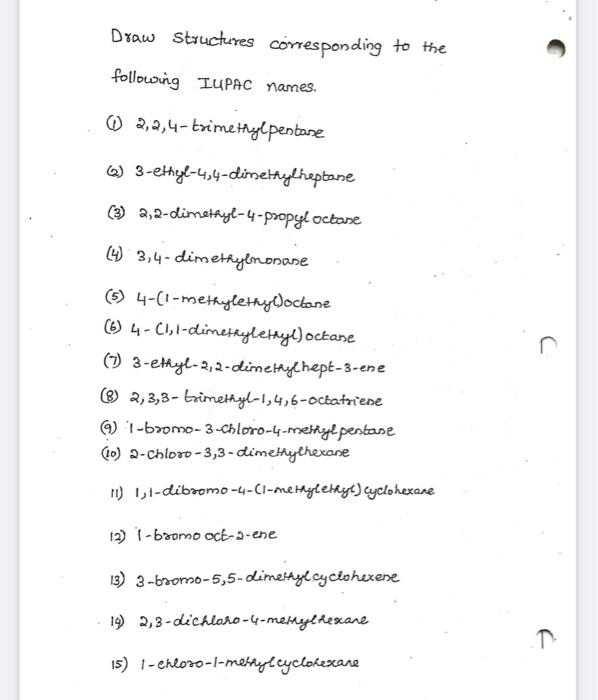 Draw Structures corresponding to the
following IUPAC names.
(1) 2,2,4-trimethylpentane
(2) 3-ethyl-4,4-dimethylheptane
(3) 2,2-dimethyl-4-propyl octane
(4) 3,4-dimethylnonane
(5) 4-(1-methylethyl)octane
(6) 4-(1,1-dimethylethyl) octane
(7) 3-ethyl-2,2-dimethylhept-3-ene
(8) 2,3,3-trimethyl-1,4,6-octatriene
(9) 1-bromo-3-chloro-4-methylpentane
(10) 2-chloro-3,3-dimethylhexane
11) 1,1-dibromo-4-(1-methylethyl)cyclohexane
12) 1-bromo oct-2-ene
13) 3-bromo-5,5-dimethylcyclohexene
14) 2,3-dichloro-4-methylhexane
15) 1-chloro-1-methylcyclohexane